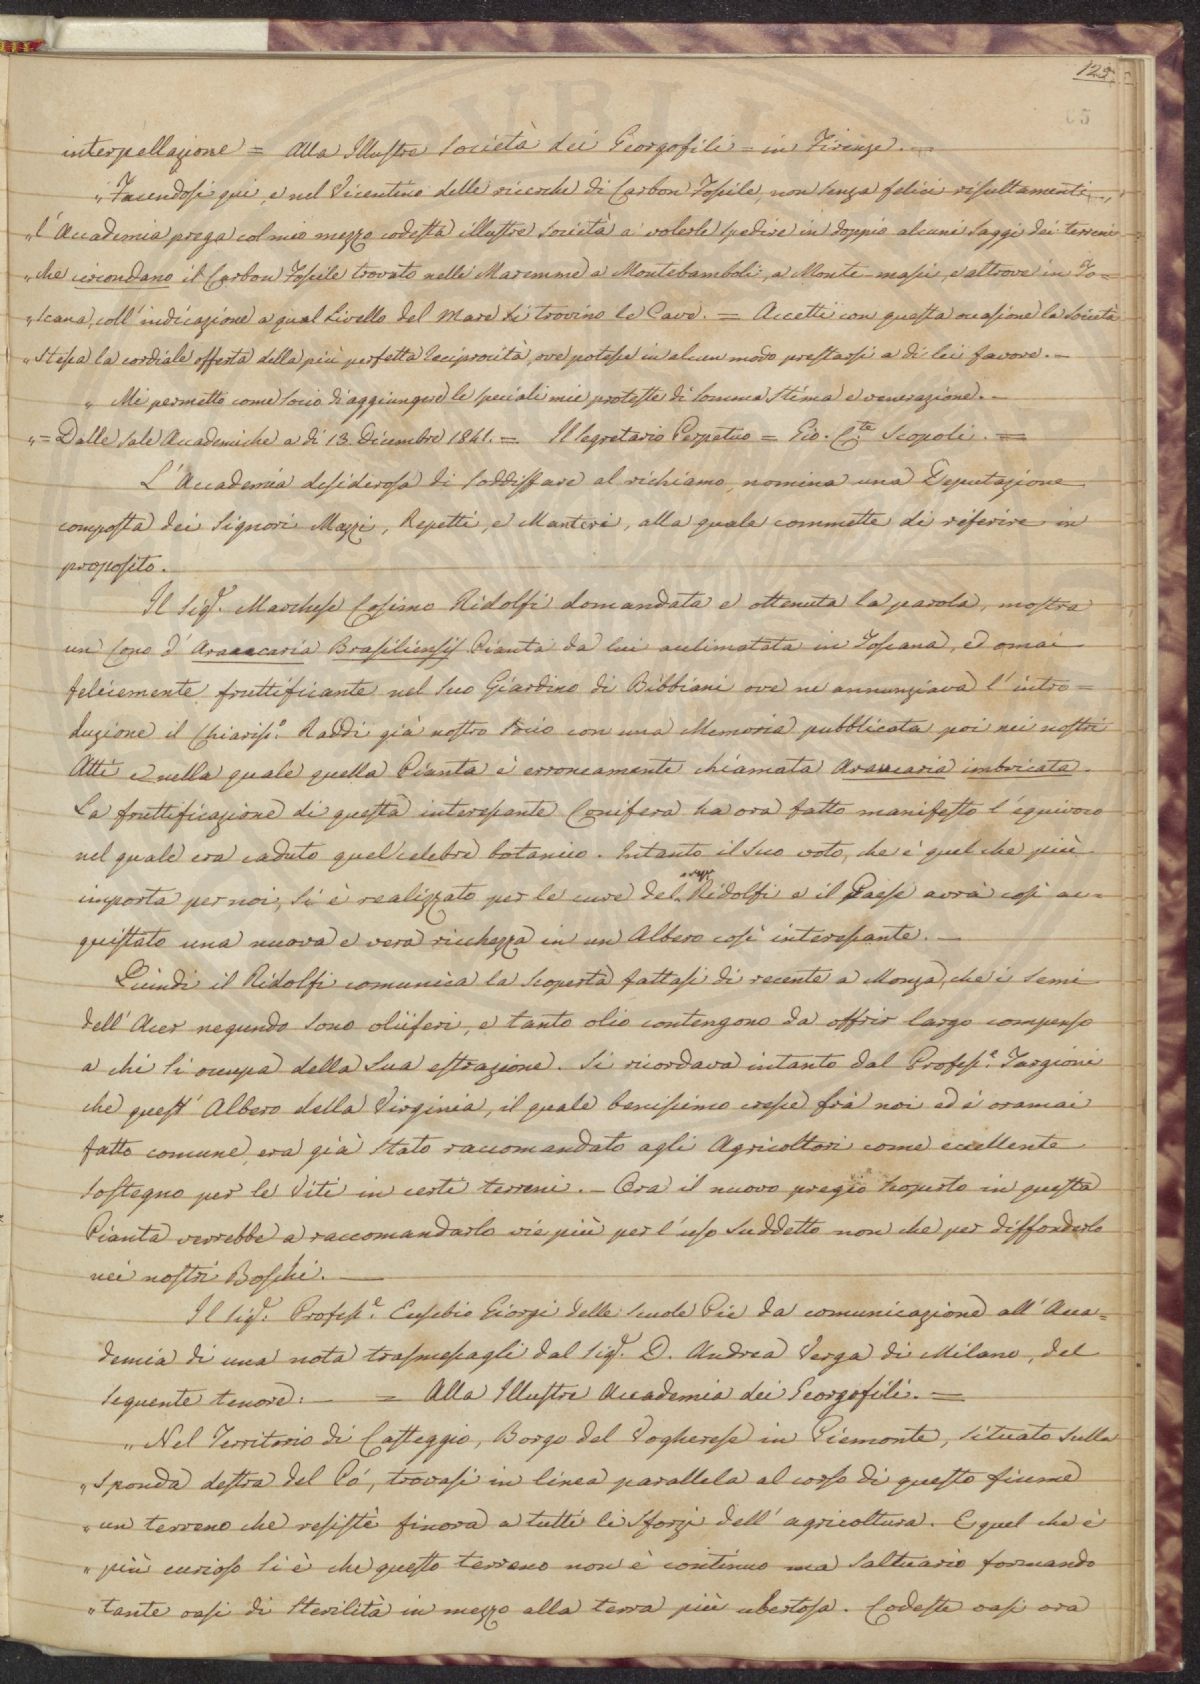 125
65
interpellazione = Alla Illustre Società dei Georgofili = in Firenze. =
„ Facendosi qui, e nel Vicentino delle ricerche di Carbon Fossile, non senza felici risultamenti,
„ l'Accademia prega col mio mezzo codesta illustre Società a volerle spedire in doppio alcuni saggi dei terreni
„ che circondano il Carbon Fossile trovato nelle Maremme a Montebamboli, a Monte-masi, e altrove in To=
„ scana, coll'indicazione a qual Livello del Mare si trovino le Cave. = Accetti con questa occasione la Società
„ stessa la cordiale offerta della più perfetta reciprocità, ove potesse in alcun modo prestarsi a di lei favore. –
„ Mi permetto come Socio di aggiungere le speciali mie proteste di somma stima e venerazione. –
„ = Dalle Sale Accademiche a di 13 Dicembre 1841. = Il Segretario Perpetuo = Gio. Bta. Scopoli. =
L'Accademia desiderosa di soddisfare al richiamo, nomina una Deputazione
composta dei Signori Mazzi, Repetti, e Manteri, alla quale commette di riferire in
proposito.
Il Sigr. Marchese Cosimo Ridolfi domandata e ottenuta la parola, mostra
un Cono d'Araucaria Brasiliensis Pianta da lui acclimatata in Toscana, ed omai
felicemente fruttificante nel suo Giardino di Bibbiani ove ne annunziava l'intro=
duzione il Chiariss.o Raddi già nostro Socio con una Memoria pubblicata poi nei nostri
Atti e nella quale quella Pianta è erroneamente chiamata Araucaria imbricata.
La fruttificazione di questa interessante Conifera ha ora fatto manifesto l'equivoco
nel quale era caduto quel celebre botanico. Intanto il suo voto, che è quel che più
importa per noi, si è realizzato per le cure del Ridolfi e il Paese avrà così ac=
quistato una nuova e vera ricchezza in un Albero così interessante. –
Quindi il Ridolfi comunica la scoperta fattasi di recente a Monza, che i semi
dell'Acer negundo sono oliiferi, e tanto olio contengono da offrir largo compenso
a chi si occupa della sua estrazione. Si ricordava intanto dal Profess.e Targioni
che quest'Albero della Virginia, il quale benissimo cresce frà noi ed è oramai
fatto comune, era già stato raccomandato agli Agricoltori come eccellente
sostegno per le Viti in certi terreni. – Ora il nuovo pregio scoperto in questa
Pianta verrebbe a raccomandarlo vie più per l'uso suddetto non che per diffonderlo
nei nostri Boschi. –
Il Sigr. Profess.e Eusebio Giorgi delle Scuole Pie da comunicazione all'Acca=
demia di una nota trasmessagli dal Sigr. D. Andrea Verga di Milano, del
seguente tenore: – = Alla Illustre Accademia dei Georgofili. =
„ Nel Territorio di Casteggio, Borgo del Vogherese in Piemonte, situato sulla
„ sponda destra del Pó, trovasi in linea parallela al corso di questo fiume
„ un terreno che resistè finora a tutti li sforzi dell'agricoltura. E quel che è
„ più curioso si è che questo terreno non è continuo ma saltuario formando
„ tante oasi di sterilità in mezzo alla terra più ubertosa. Codeste oasi ora